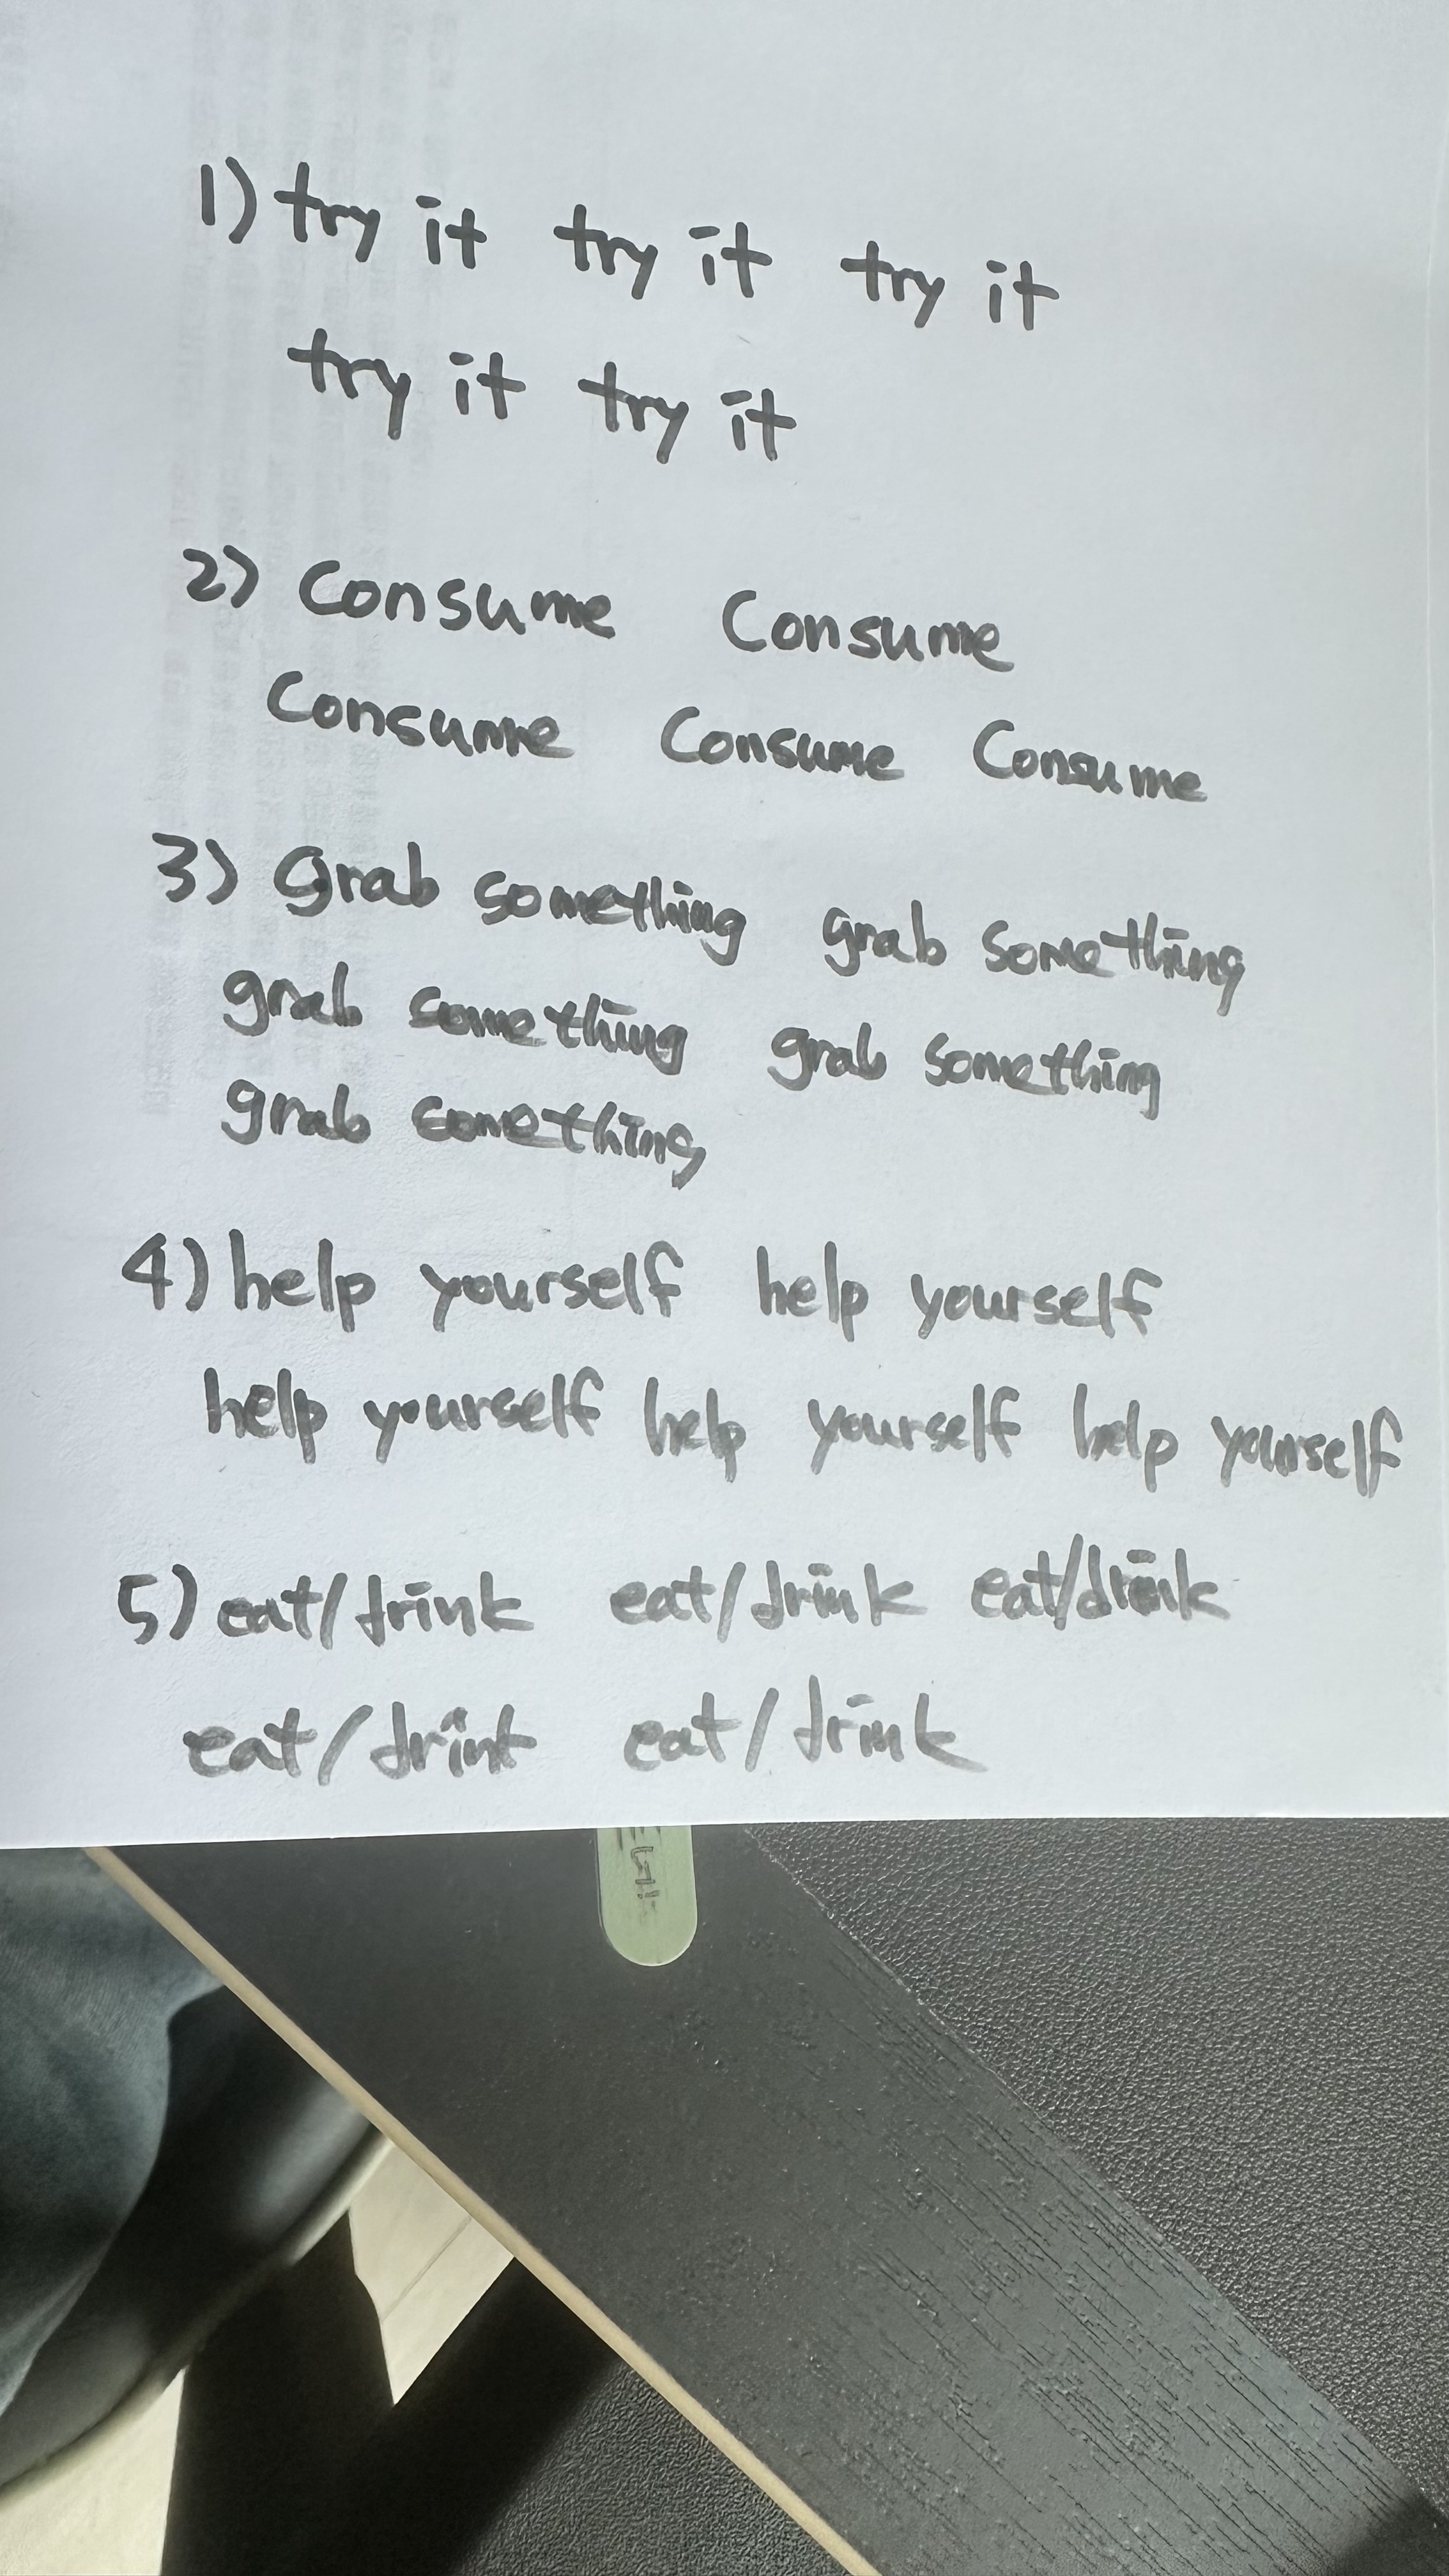 1) try it try it try it
try it try it
2) Consume Consume
Consume Consume Consume
3) Grab something grab something
grab something grab something
grab something
4) help yourself help yourself
help yourself help yourself help yourself
5) eat/drink eat/drink eat/drink
eat/drink eat/drink